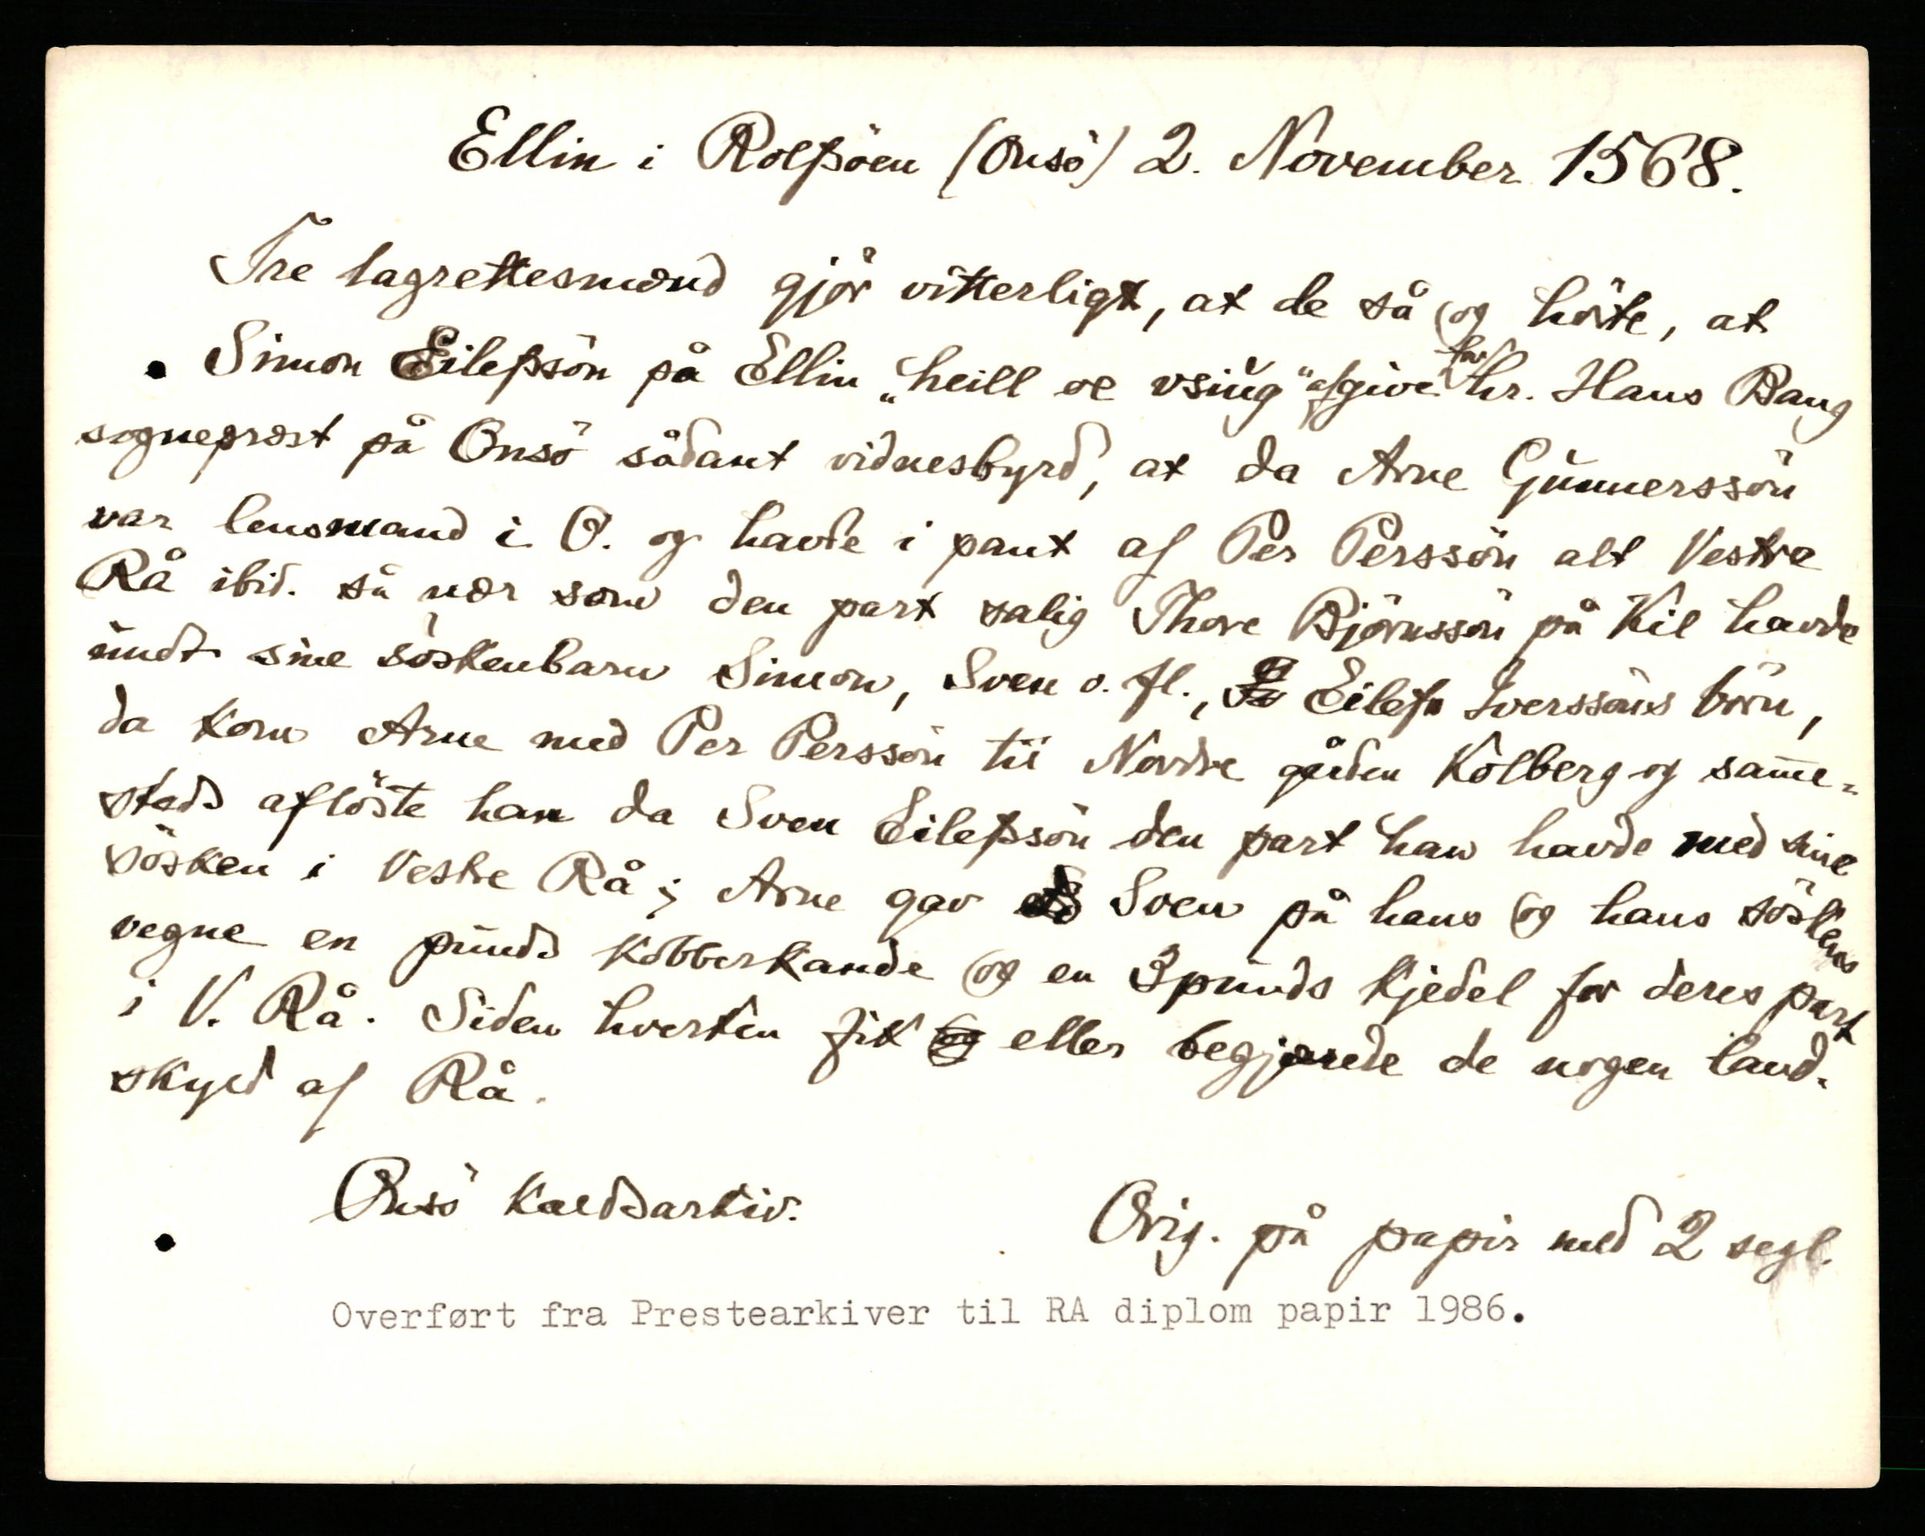 Ellin i Rolfsöen (Onsö) 2. November 1568.
Tre lagrettesmænd gjör vitterligt, at de så og hörte, at
Simon Eilefssön på Ellin „heill oc vsiug" afgive for hr. Hans Bang
sogneprest på Onsö sådant vidnesbyrd, at da Arne Gunnerssön
var lensmand i O. og havde i pant af Per Perssön alt Vestre
Rå ibid. så nær som den part salig Thore Björnssön på Kil havde
undt sine söskenbarn Simon, Sven o. fl., Eilef Iverssöns börn,
da kom Arne med Per Perssön til Nordre gården Kolberg og samme-
steds aflöste han da Sven Eilefssön den part han havde med sine
sösken i Vestre Rå; Arne gav Sven på hans og hans söskens
vegne en punds kobberkande og en 3punds kjedel for deres part
i V. Rå. Siden hverken fik eller begjærede de nogen land-
skyld af Rå.
Onsö kaldsarkiv.
Orig. på papir med 2 segl.
Overført fra Prestearkiver til RA diplom papir 1986.